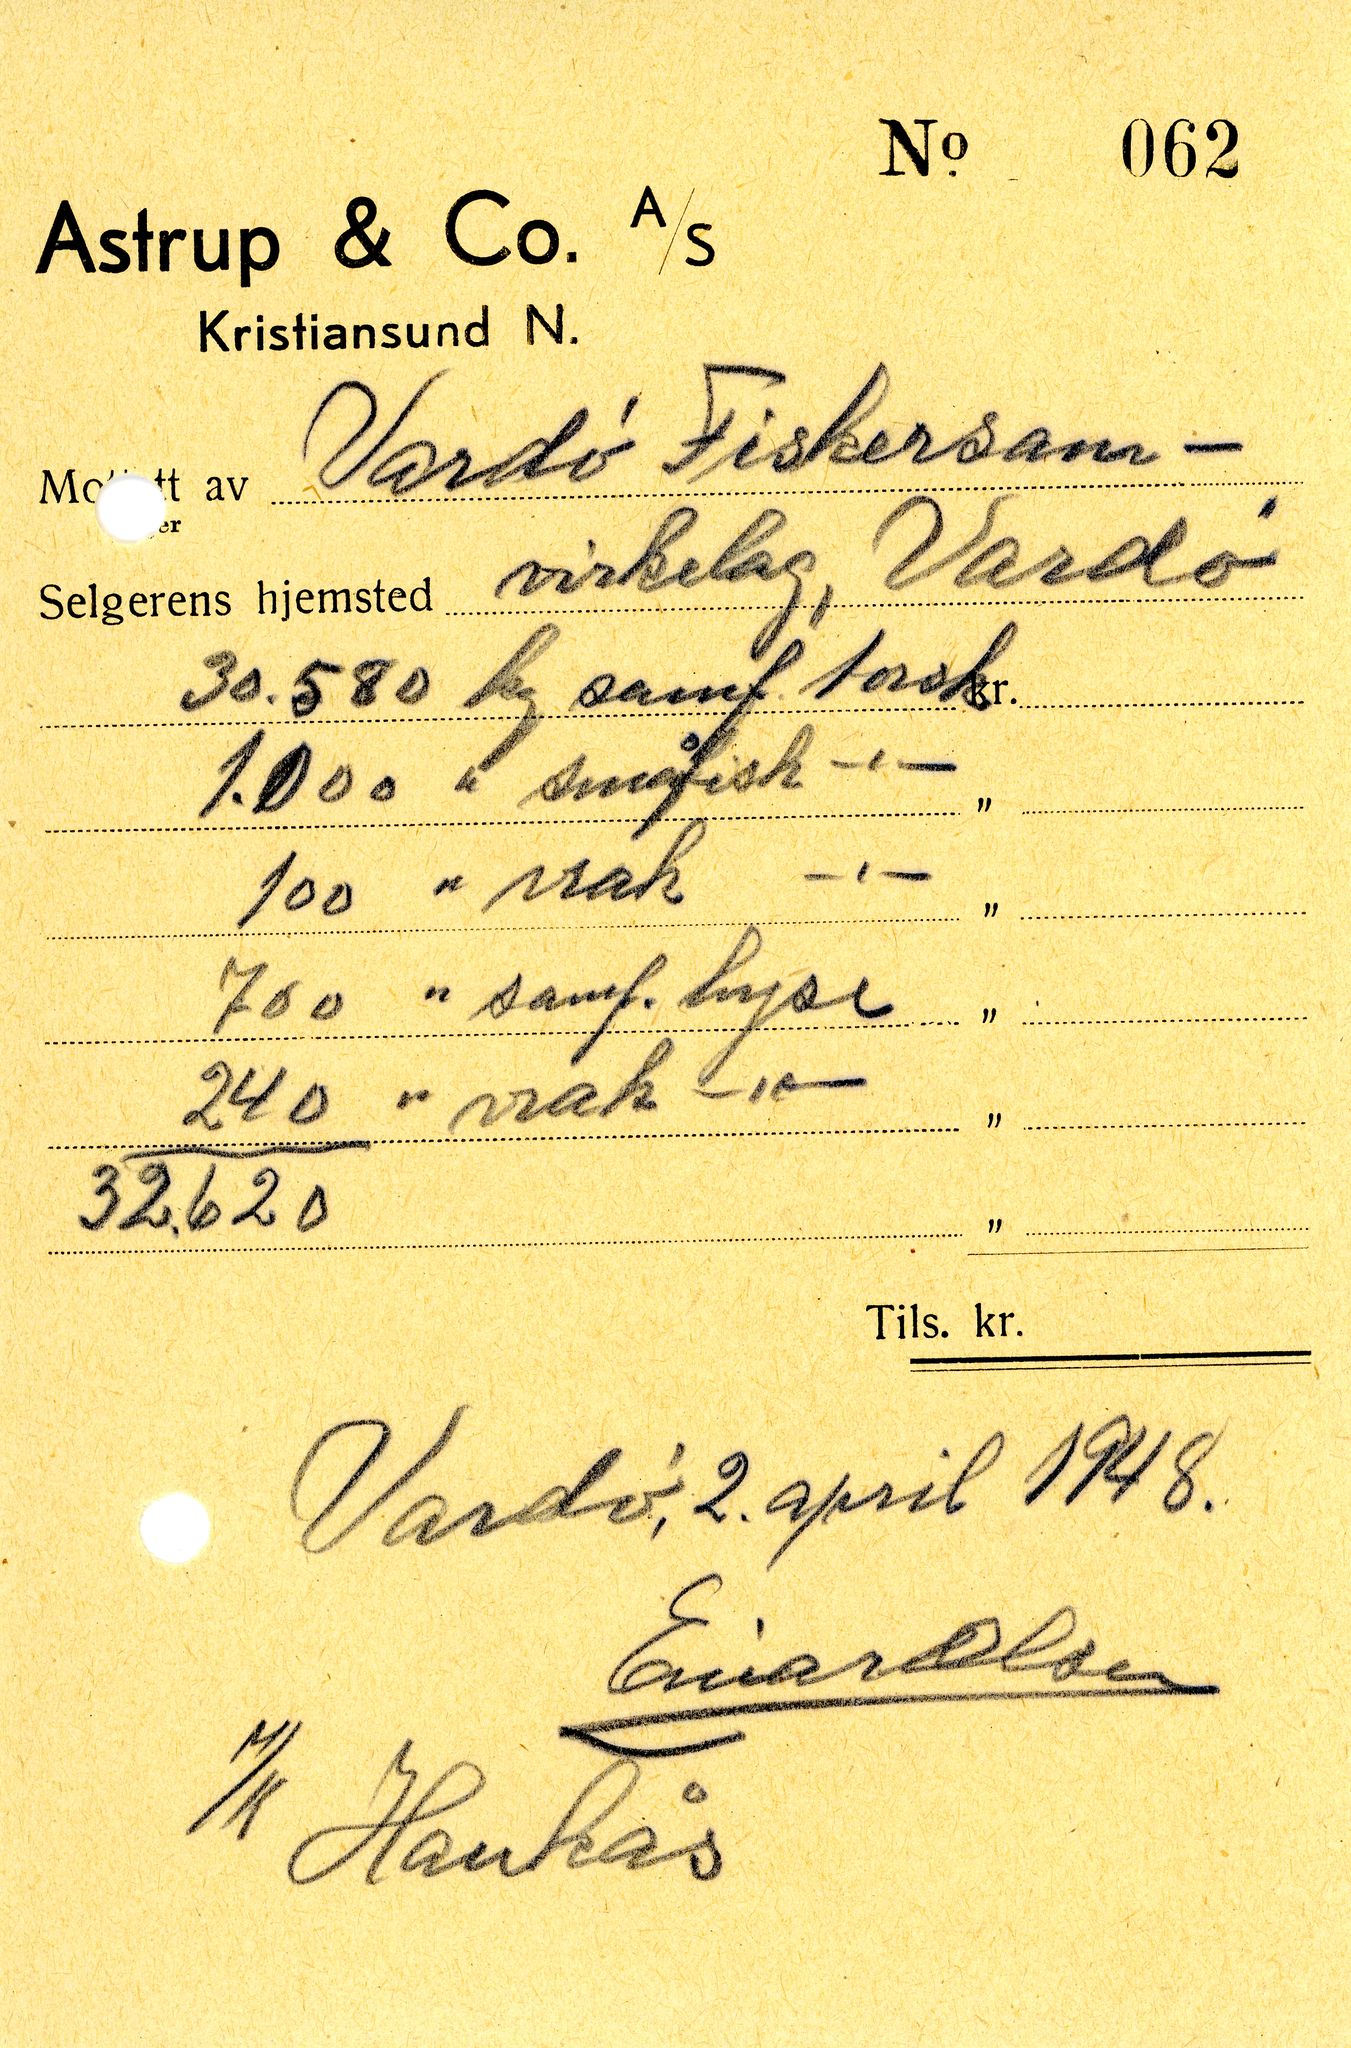 Nº 062
Astrup & Co. A/S
Kristiansund N.
Vardö Fiskersam-
av
virkelag, Vardö
Selgerens hjemsted
30.580 kg samf. torsk kr.
1.000 " småfisk -"- "
100 " vrak -"- "
700 " samf. hyse "
240 " vrak -"- "
32.620 "
Tils. kr.
Vardö, 2. april 1948.
Einar Olsen
M/K Haukås